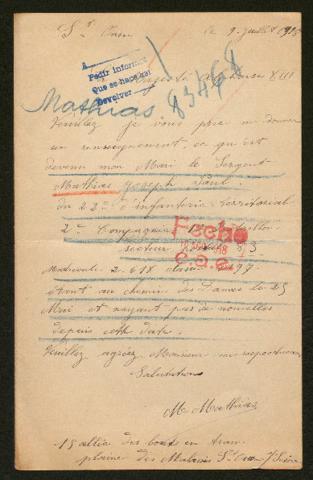 St Ouen le 9 Juillet 19
A
Pedir informes
Que se haga así
Devolver
Majesté Alphonse XIII
Mathias 83468
Veuillez je vous prie me donner
un renseignement, ce qu'est
devenu mon Mari le Sergent
Mathias Joseph Paul.
du 22e d'infanterie territorial
2e Compagnie
Fecho
secteur
C.O.E.
Matricule 2.618 classe 97
étant au chemin des Dames le 25
Mai et n'ayant pas de nouvelles
depuis cette date.
Veuillez agréez Monsieur mes respectueuses
Salutations
Me Mathias
18 allée des
plaine des Malassis St Ouen s/ Seine